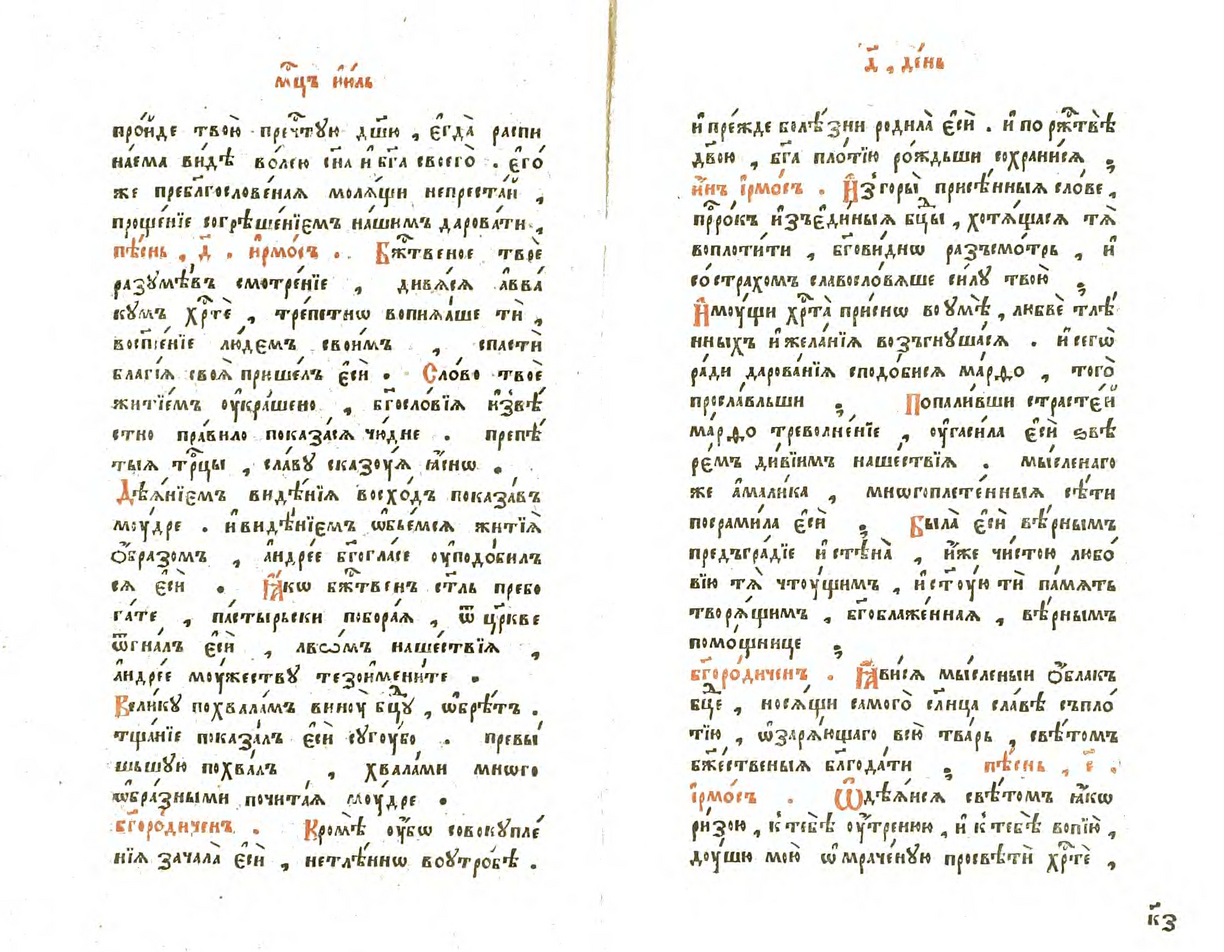 мⷭ҇цъ и҆ю́ль
про́йде твою̀ пречⷭ҇тую дш҃ю , є҆гда̀ распи
на́ема ви́дѣ во́лею сн҃а и҆ бг҃а своего̀ . є҆го́
же преблагослове́ная моля́щи непреста́й ,
проще́нїе согрѣше́нїємъ на́шимъ дарова́ти ,
пѣ́снь , д҃ . і҆рмо́съ . Бж҃твеное твоѐ
разумѣ́въ смотре́нїе , дивя́ся а҆вва
ку́мъ хрⷭ҇тѐ , тре́петнѡ вопия́ше тѝ ,
воспⷭ҇е́нїе лю́демъ свои̑мъ , спасти̑
благі́я своя̀ прише́лъ є҆сѝ . Сло́во твоѐ
житїе́мъ оу҆кра́шено , бг҃осло́вїя и҆звѣ́
стно пра́вило показа́ся чю́дне . препѣ́
тыя трⷪ҇цы , сла́ву сказоу́я ꙗ҆́снѡ .
Дѣя́нїємъ ви́дѣнїя восхо́дъ показа́въ
моу́дре . и҆ ви́дѣнїємъ ѡ҆бъе́мся житїя̀
ѻ҆́бразомъ , а҆ндре́е бг҃огла́се оу҆подо́билъ
ся є҆сѝ . Ꙗ҆́кѡ бж҃твенъ ст҃ль пребо
га́те , па́стырьски побора́я , ѿ цр҃кве
ѿгна́лъ є҆сѝ , львѡ́мъ наше́ствїя ,
а҆ндре́е моу́жеству тезоимени́те .
Вели́ку похвала́мъ виноу̀ бцⷣу , ѡ҆брѣ́тъ .
тща́нїе показа́лъ є҆сѝ сугоу́бо . превы́
шьшую похва́лъ , хвала́ми мно́го
ѡ҆бра́зными почита́я моу́дре .
бг҃оро́диченъ . Кромѣ̀ оу҆́бѡ совокупле́
нїя зачала̀ є҆сѝ , нетлѣ́ннѡ во оутро́бѣ .
д҃ , де́нь
и҆ пре́жде болѣ́зни родила̀ є҆сѝ . и҆ по ржⷭ҇твѣ̀
дв҃ою , бг҃а пло́тїю ро́ждьши сохрани́ся ;
и҆́нъ і҆рмо́съ . И҆з горы̀ присѣ́нныя сло́ве ,
прⷪ҇ро́къ и҆зъ є҆ди́ныя бцⷣы , хотя́щася тя̀
воплоти́ти , бг҃ови́днѡ разъсмо́трь , и҆
со стра́хомъ славосло́вяше си́лу твою̀ ;
И҆моу́щи хрⷭ҇та̀ при́снѡ во оумѣ̀ , любвѐ тлѣ́
нныхъ и҆ жела́нїя возъгнуша́ся . и҆ сегѡ̀
ра́ди дарова́нїя сподо́бися ма́рѳо , того̀
просла́вльши ; Попали́вши страсте́й
ма́рѳо треволне́нїе , оу҆гаси́ла є҆сѝ ѕвѣ
ре́мъ ди́вїимъ наше́ствїя . мы́сленаго
же а҆мали́ка , мно́гоплете́нныя сѣ́ти
посрами́ла є҆сѝ ; Была̀ є҆сѝ вѣ́рнымъ
предъгра́дїе и҆ стѣна̀ , и҆́же чи́стою любо́
вїю тя̀ чтоу́щимъ , и҆ ст҃оую тѝ па́мять
творя́щимъ , бг҃облаже́нная , вѣ́рнымъ
помо́щнице ;
бг҃оро́диченъ . Ꙗ҆ви́ся мы́сленыи ѻ҆́блакъ
бцⷣе , нося́щи самого̀ сл҃нца сла́вѣ съ пло́
тїю , ѡ҆заря́ющаго всю̀ тва́рь , свѣ́томъ
бж҃ественыя блгⷣода́ти ; пѣ́снь , є҃ .
і҆рмо́съ . Ѿдѣя́ися свѣ́томъ ꙗ҆́кѡ
ри́зою , к тебѣ̀ оу҆́тренюю , и҆ к тебѣ̀ вопїю̀ ,
доу́шю мою̀ ѡ҆мраче́ную просвѣтѝ хрⷭ҇тѐ ,
к҃з